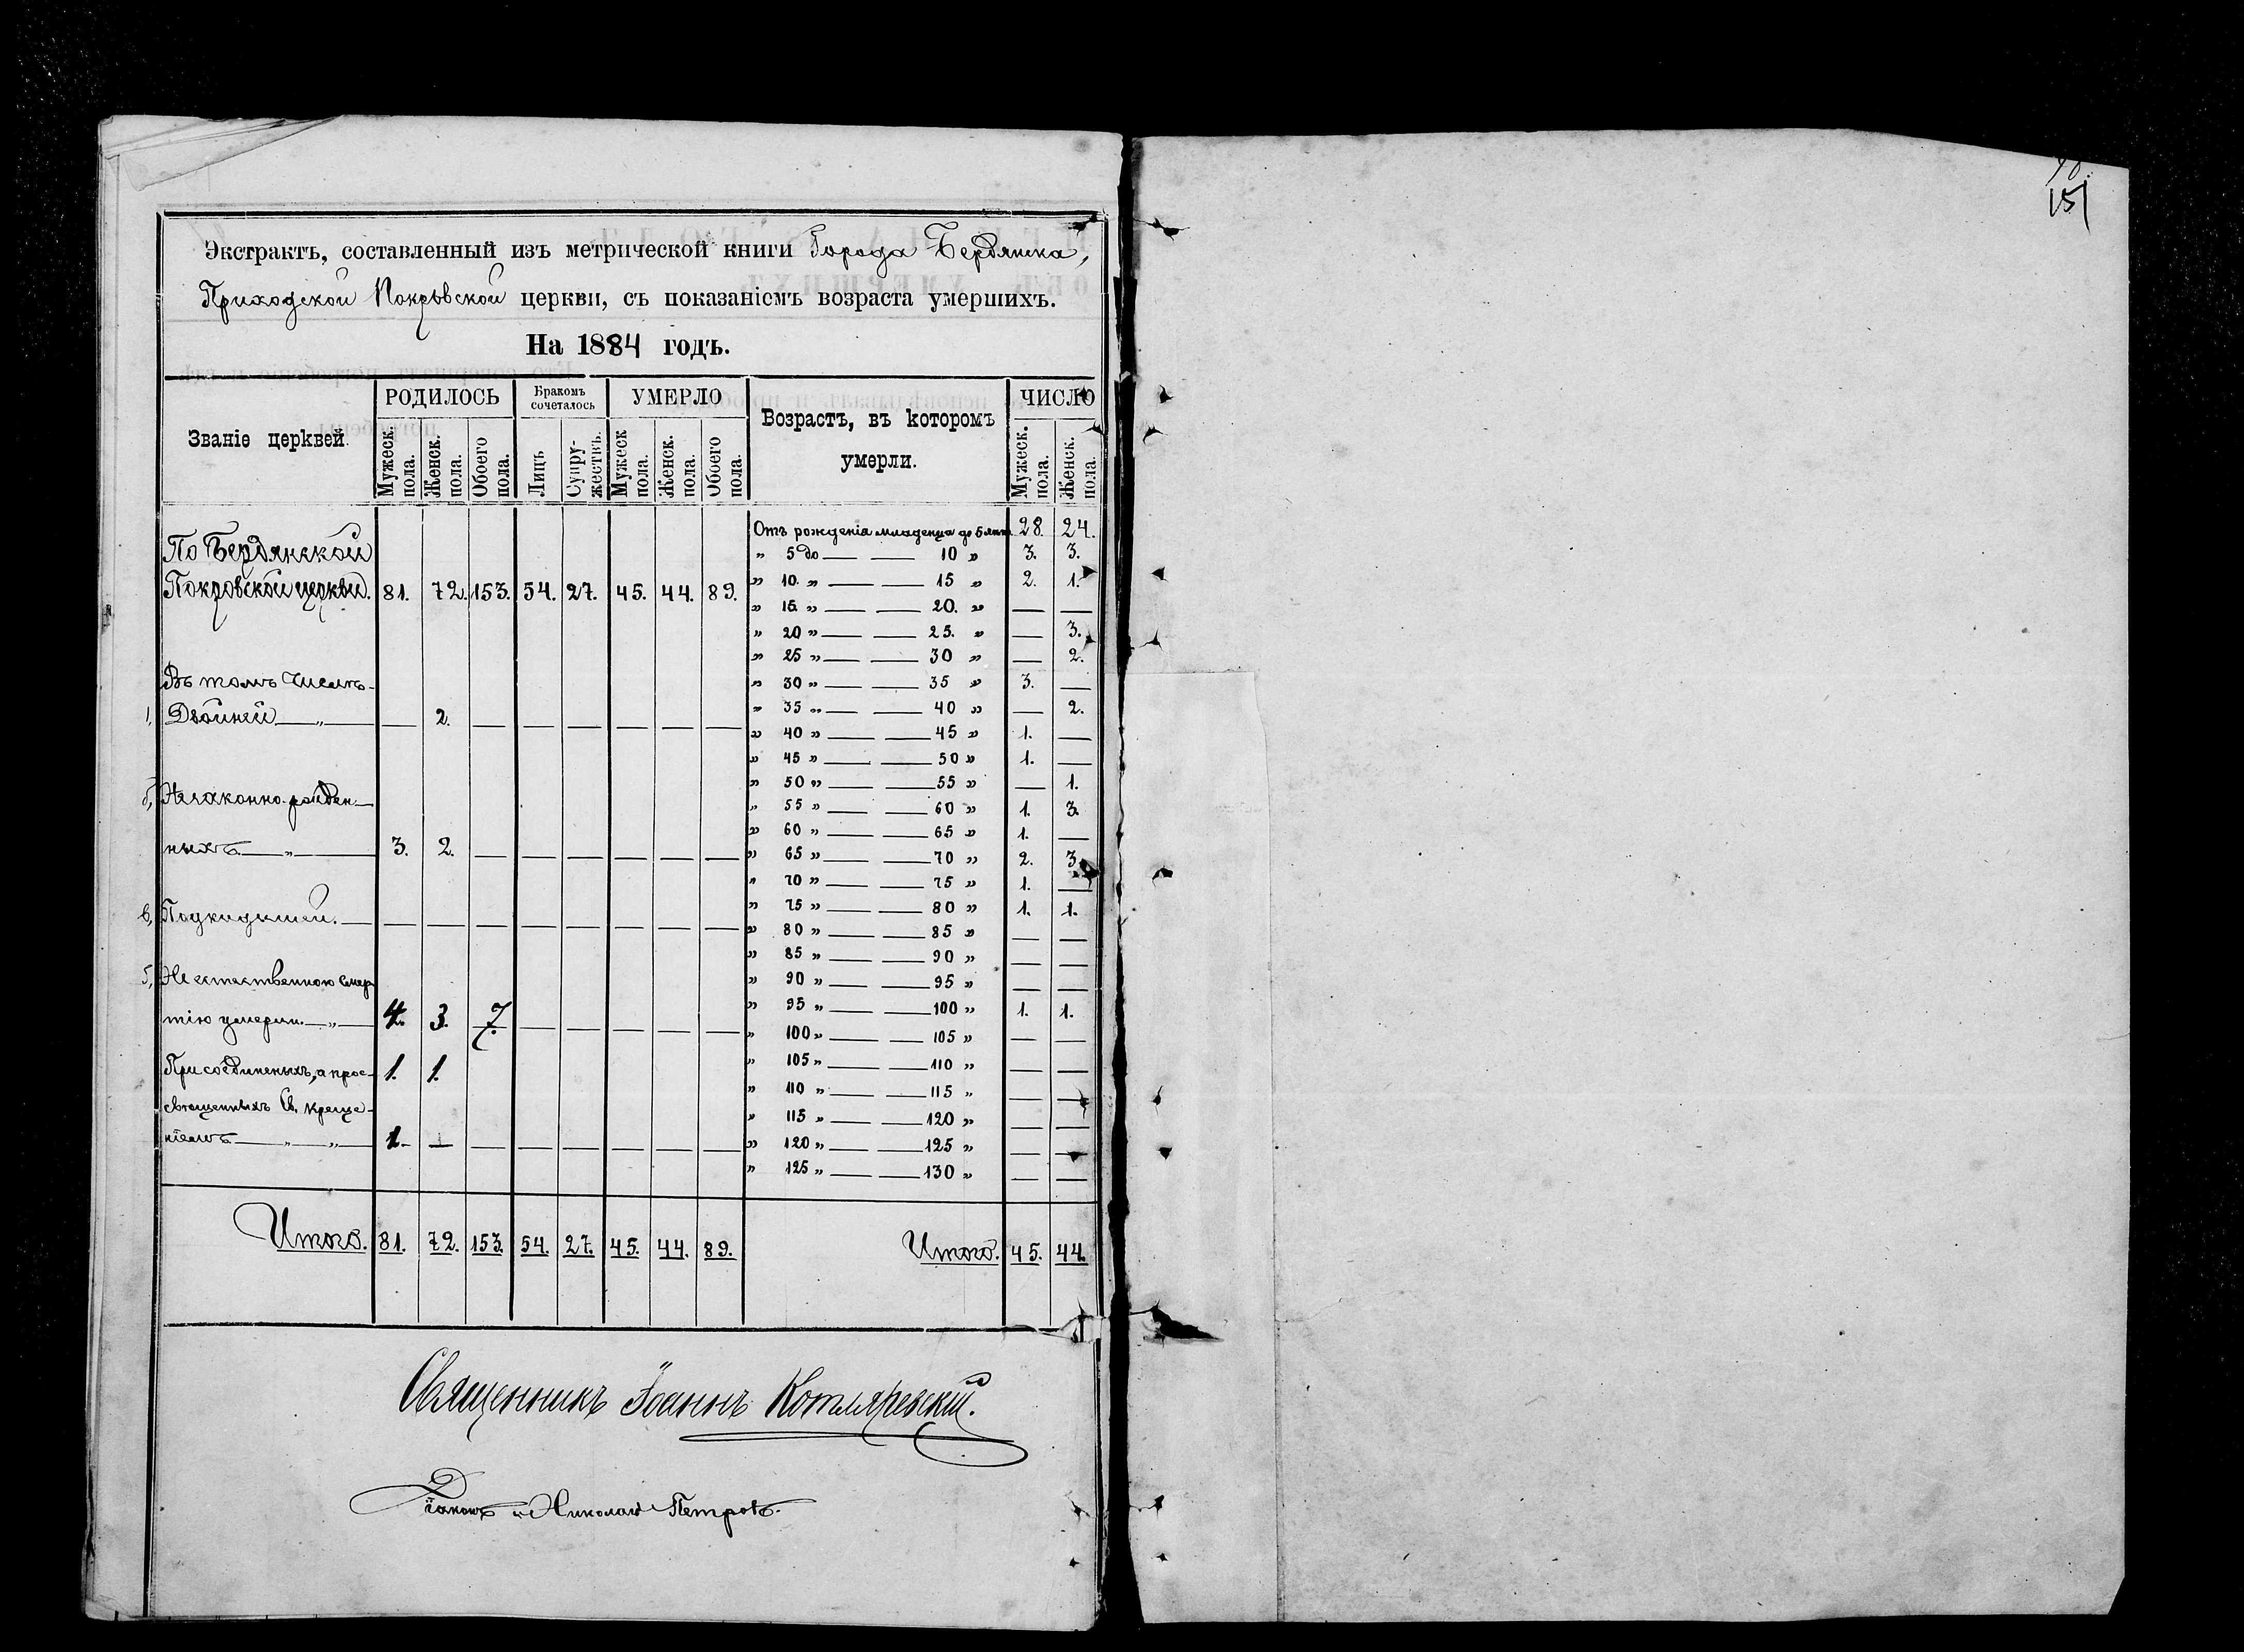 151
Экстрактъ, составленный изъ метрической книги Города Бердянска,
Приходской Покровской церкви, съ показаніемъ возраста умершихъ.
На 1884 годъ.
Званіе церквей.
РОДИЛОСЬ
Мужеск. пола.
Женск. пола.
Обоего пола.
Бракомъ сочеталось
Лицъ
Супру-жествъ.
УМЕРЛО
Мужеск пола.
Женск. пола.
Обоего пола.
Возрастъ, въ которомъ
умерли.
ЧИСЛО
Мужеск. пола.
Женск. пола.
По Бердянской
Покровской церкви. 81. 72. 153. 54. 27. 45. 44. 89.
Въ томъ числѣ
Двойней — „ — — 2. — — — — — —
Незаконно-рожден-
ныхъ — „ — 3. 2. — — — — — —
Подкидышей. — — — — — — — — —
Не естественною смер
тію умерли. — „ — 4. 3. 7. — — — — —
Присоединеныхъ, а прос- 1. 1.
вѣщенныхъ Св. креще-
ніемъ — „ — „ — 1. — — — — — — —
Итого. 81. 72. 153. 54. 27. 45. 44. 89.
Отъ рожденія младенца до 5 лѣтъ 28. 24.
„ 5 до — — 10 „ 3. 3.
„ 10. „ — — 15 „ 2. 1.
„ 15 „ — — 20. „ — —
„ 20 „ — — 25. „ — 3.
„ 25 „ — — 30 „ — 2.
„ 30 „ — — 35 „ 3. —
„ 35 „ — — 40 „ — 2.
„ 40 „ — — 45 „ 1. —
„ 45 „ — — 50 „ 1. —
„ 50 „ — — 55 „ — 1.
„ 55 „ — — 60 „ 1. 3.
„ 60 „ — — 65 „ 1. —
„ 65 „ — — 70 „ 2. 3.
„ 70 „ — — 75 „ 1. —
„ 75 „ — — 80 „ 1. 1.
„ 80 „ — — 85 „ — —
„ 85 „ — — 90 „ — —
„ 90 „ — — 95 „ — —
„ 95 „ — — 100 „ 1. 1.
„ 100 „ — — 105 „ — —
„ 105 „ — — 110 „ — —
„ 110 „ — — 115 „ — —
„ 115 „ — — 120 „ — —
„ 120 „ — — 125 „ — —
„ 125 „ — — 130 „ — —
Итого. 45. 44.
Священникъ Іоаннъ Котляревскій.
Діаконъ Николай Петровъ.